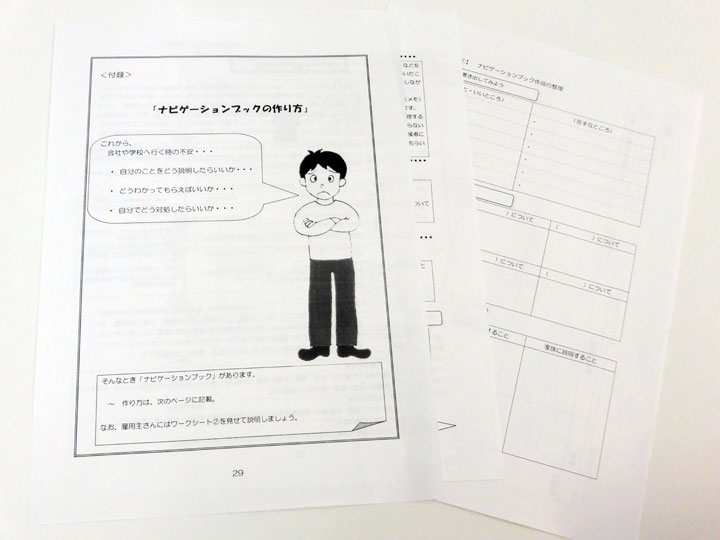 ＜付録＞
「ナビゲーションブックの作り方」
これから、
会社や学校へ行く時の不安・・・
・ 自分のことをどう説明したらいいか・・・
・ どうわかってもらえばいいか・・・
・ 自分でどう対処したらいいか・・・
そんなとき「ナビゲーションブック」があります。
～ 作り方は、次のページに記載。
なお、雇用主さんにはワークシート②を見せて説明しましょう。
29
などを
いたこ
しなが
(メモ)
です。
理する
らない
援者に
もらい
ついて
ナビゲーションブック作成の整理
書き出してみよう
・いいところ）
（苦手なところ）
）について
（　　　）について
）について
（　　　）について
すること
家族に説明すること